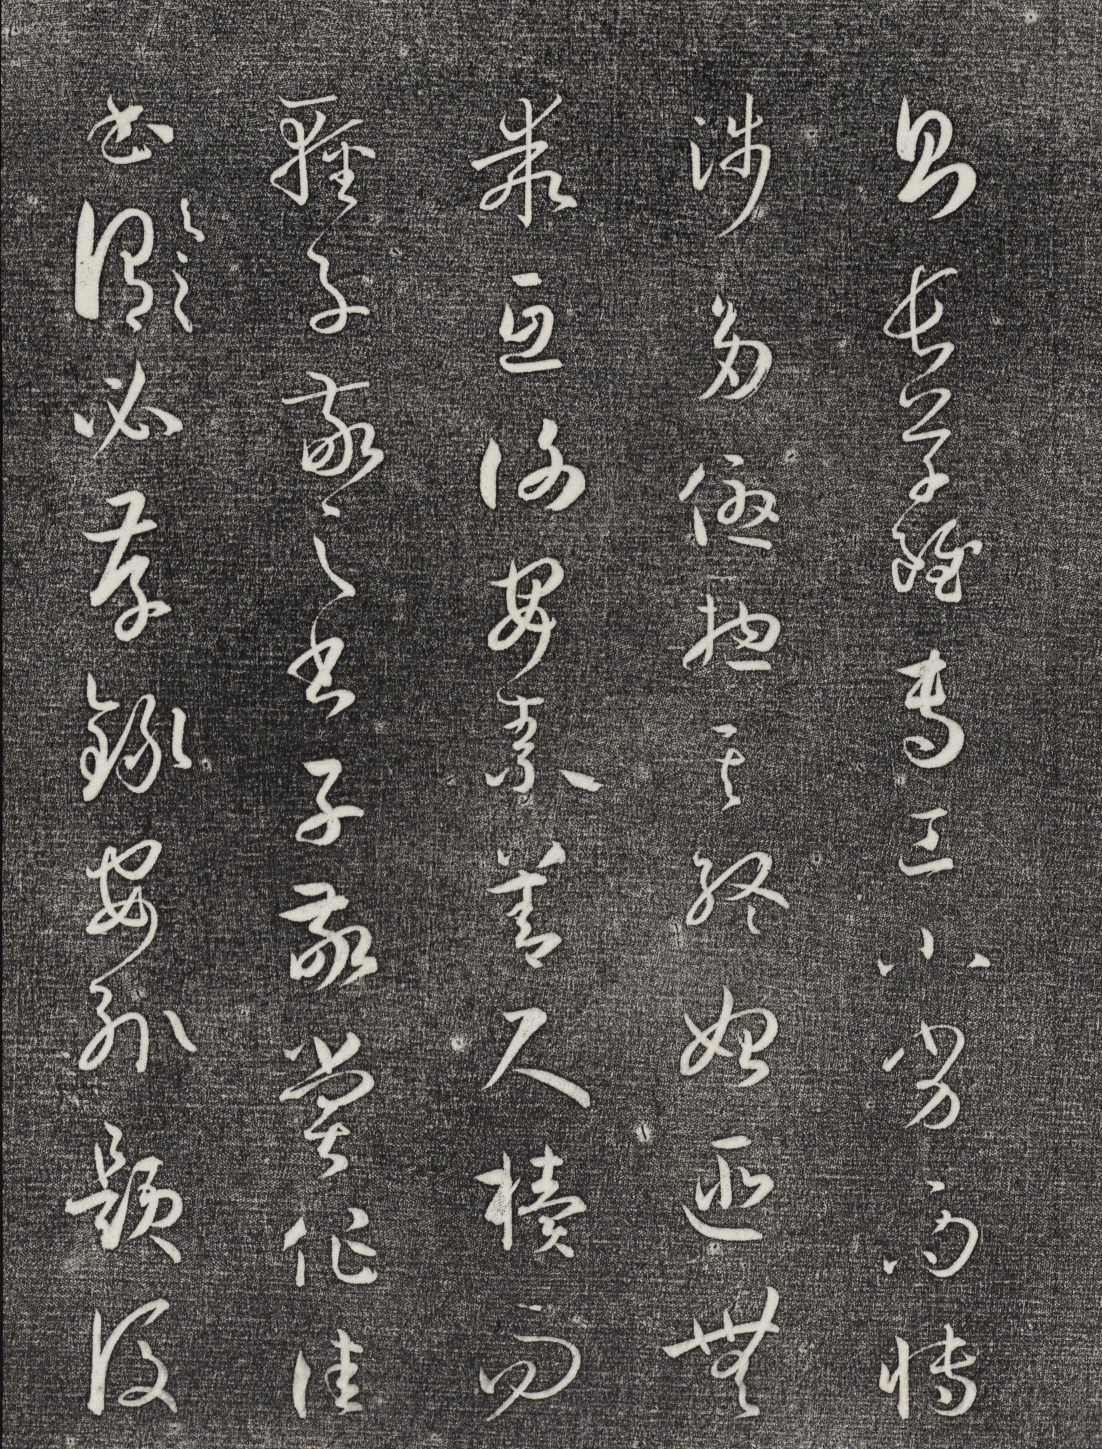 則長草雖專工小劣而博
涉多優總其終始匪無
乖互謝安素善尺牘而
輕子敬之書子敬嘗作佳
書與之謂必存錄安輒題後